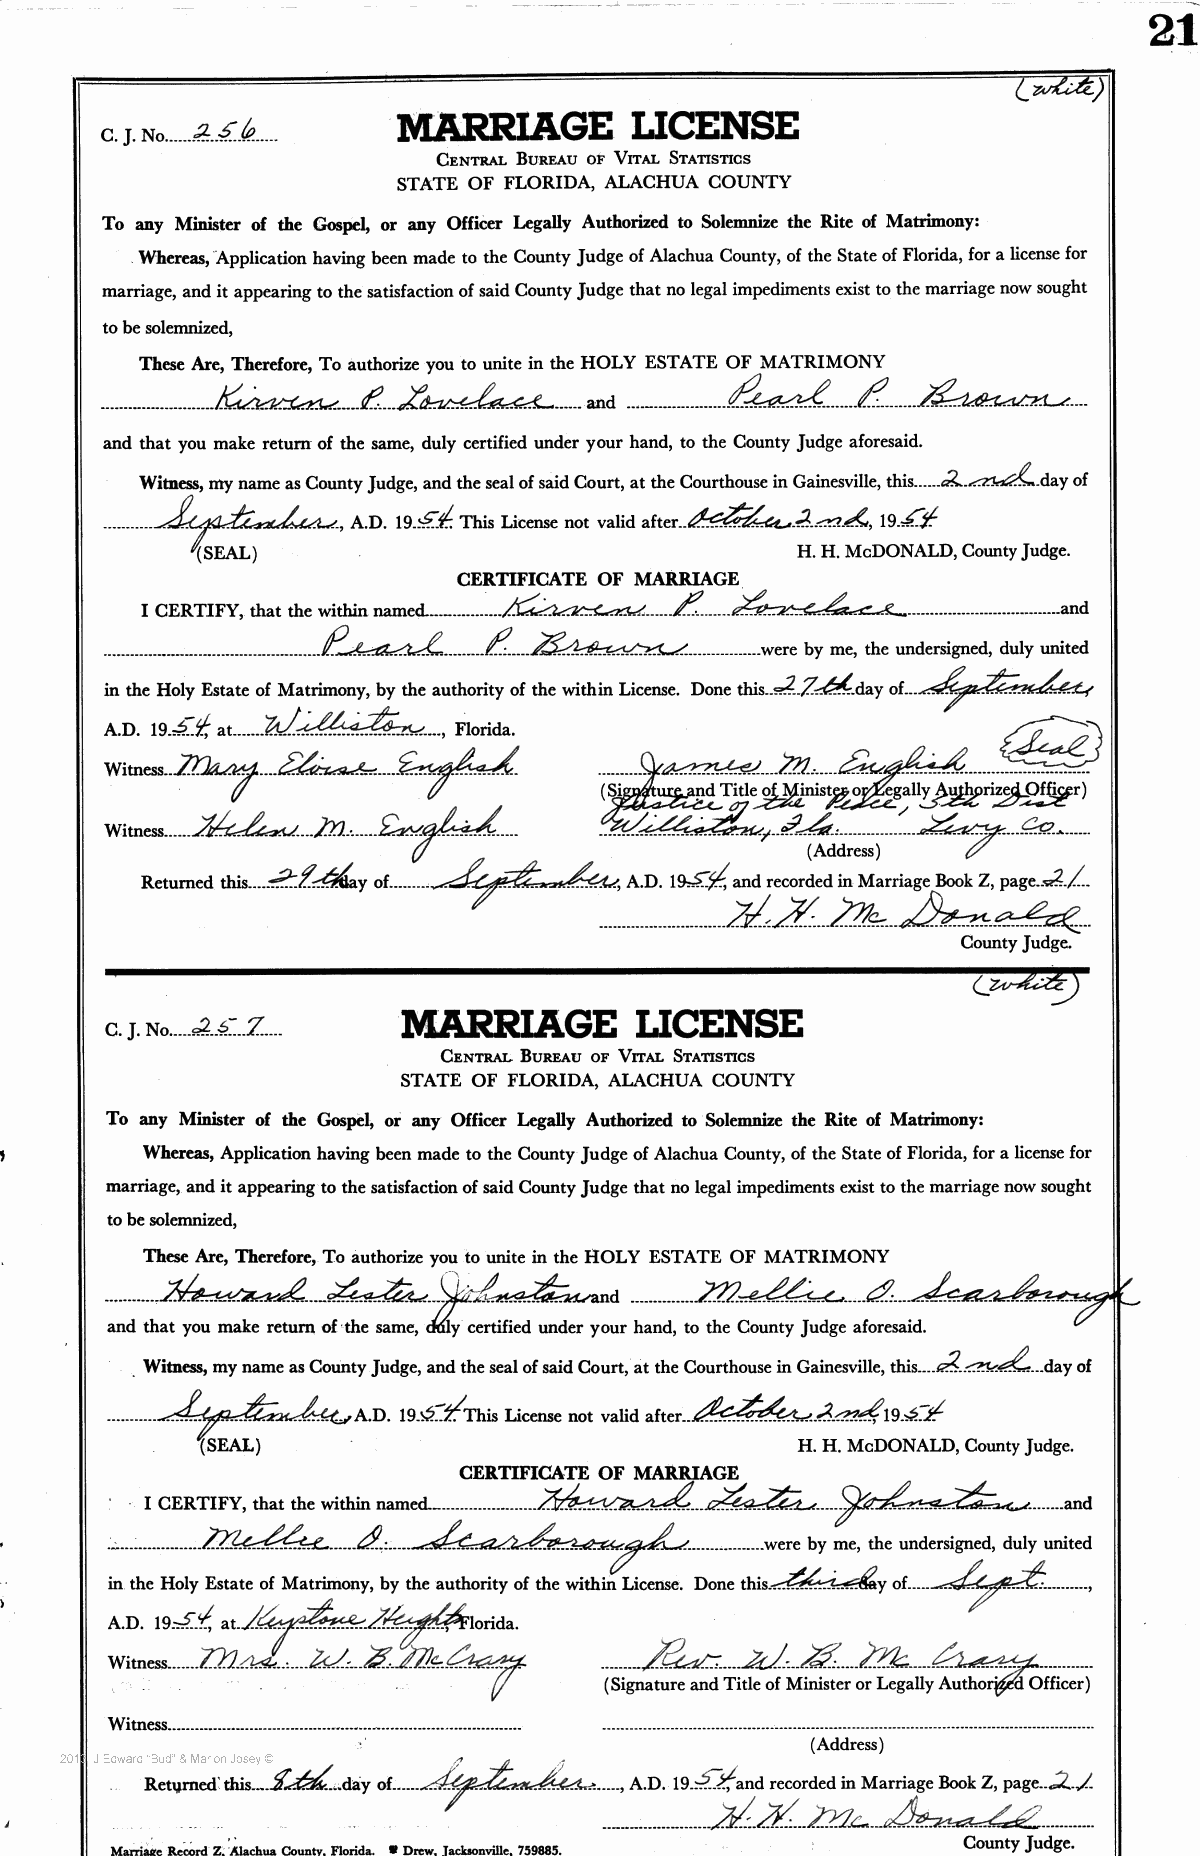 21
(white)
C. J. No. 256
MARRIAGE LICENSE
CENTRAL BUREAU OF VITAL STATISTICS
STATE OF FLORIDA, ALACHUA COUNTY
To any Minister of the Gospel, or any Officer Legally Authorized to Solemnize the Rite of Matrimony:
Whereas, Application having been made to the County Judge of Alachua County, of the State of Florida, for a license for
marriage, and it appearing to the satisfaction of said County Judge that no legal impediments exist to the marriage now sought
to be solemnized,
These Are, Therefore, To authorize you to unite in the HOLY ESTATE OF MATRIMONY
Kirven P. Lovelace and Pearl P. Brown
and that you make return of the same, duly certified under your hand, to the County Judge aforesaid.
Witness, my name as County Judge, and the seal of said Court, at the Courthouse in Gainesville, this 2nd day of
September, A.D. 1954. This License not valid after October 2nd, 1954
(SEAL) H. H. McDONALD, County Judge.
CERTIFICATE OF MARRIAGE
I CERTIFY, that the within named Kirven P. Lovelace and
Pearl P. Brown were by me, the undersigned, duly united
in the Holy Estate of Matrimony, by the authority of the within License. Done this 27th day of September,
A.D. 1954, at Williston, Florida.
(Seal)
Witness Mary Eloise English James M. English
(Signature and Title of Minister or Legally Authorized Officer)
Justice of the Peace, 5th Dist
Witness Helen M. English Williston, Fla. Levy Co.
(Address)
Returned this 29th day of September, A.D. 1954, and recorded in Marriage Book Z, page 21
H. H. McDonald
County Judge.
(white)
C. J. No. 257
MARRIAGE LICENSE
CENTRAL BUREAU OF VITAL STATISTICS
STATE OF FLORIDA, ALACHUA COUNTY
To any Minister of the Gospel, or any Officer Legally Authorized to Solemnize the Rite of Matrimony:
Whereas, Application having been made to the County Judge of Alachua County, of the State of Florida, for a license for
marriage, and it appearing to the satisfaction of said County Judge that no legal impediments exist to the marriage now sought
to be solemnized,
These Are, Therefore, To authorize you to unite in the HOLY ESTATE OF MATRIMONY
Howard Lester Johnston and Mellie O. Scarborough
and that you make return of the same, duly certified under your hand, to the County Judge aforesaid.
Witness, my name as County Judge, and the seal of said Court, at the Courthouse in Gainesville, this 2nd day of
September, A.D. 1954. This License not valid after October 2nd, 1954
(SEAL) H. H. McDONALD, County Judge.
CERTIFICATE OF MARRIAGE
I CERTIFY, that the within named Howard Lester Johnston and
Mellie O. Scarborough were by me, the undersigned, duly united
in the Holy Estate of Matrimony, by the authority of the within License. Done this third day of Sept.,
A.D. 1954, at Keystone Heights, Florida.
Witness Mrs. W. B. McCrary Rev. W. B. McCrary
(Signature and Title of Minister or Legally Authorized Officer)
Witness
(Address)
J Edward "Bud" & Marion Josey ©
Returned this 8th day of September, A.D. 1954, and recorded in Marriage Book Z, page 21
H. H. McDonald
County Judge.
Marriage Record Z, Alachua County, Florida. Drew, Jacksonville, 759885.